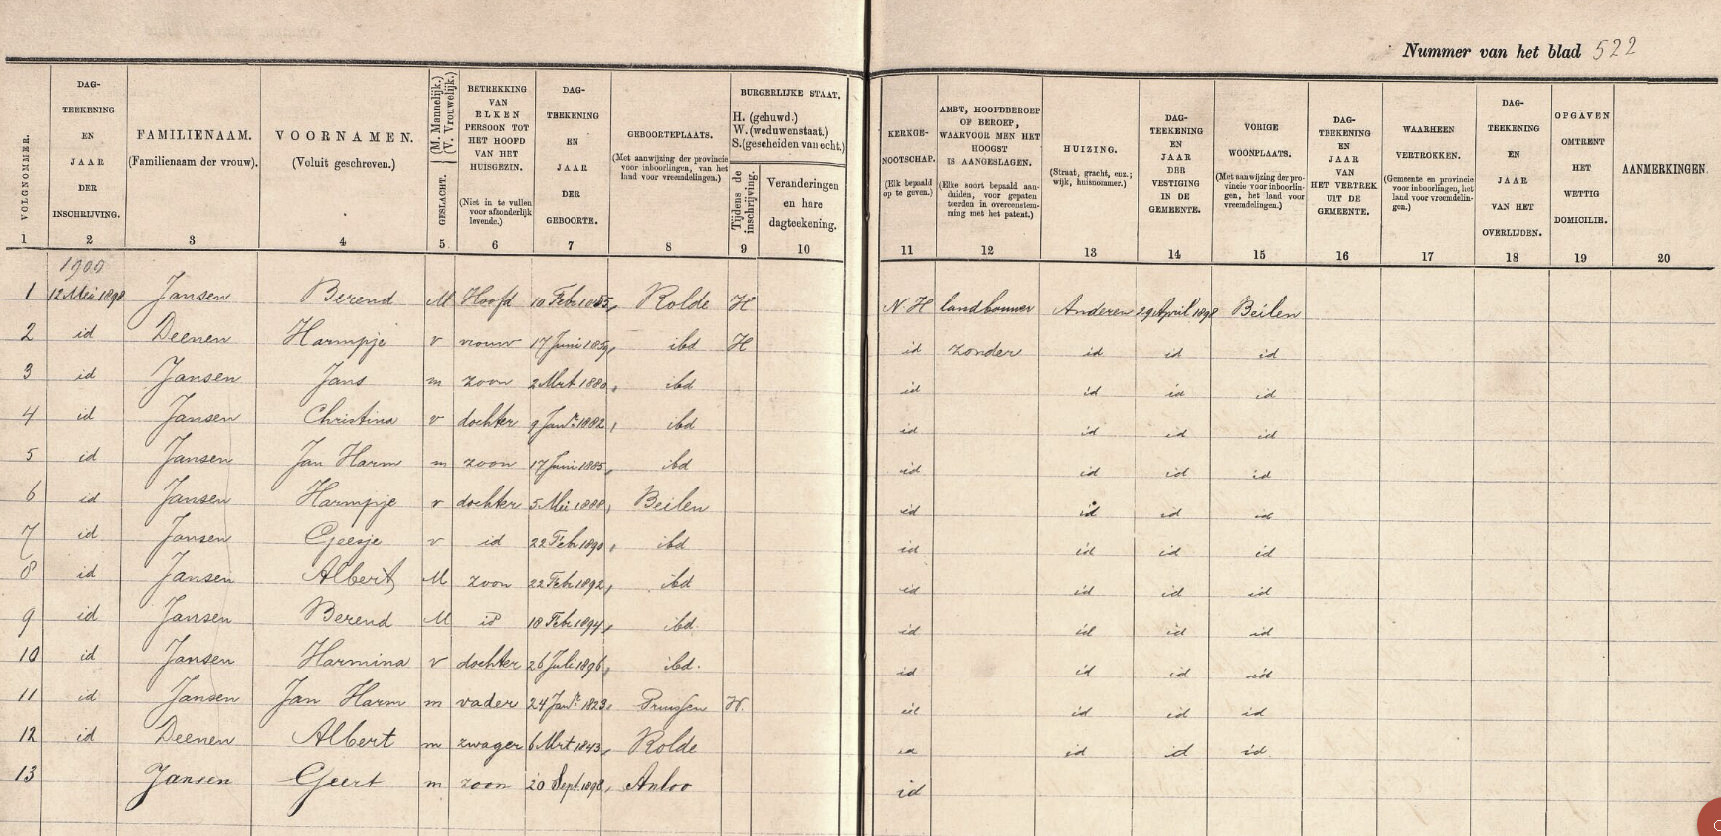 Nummer van het blad 522
VOLGNOMMER. 1
DAG-TEEKENING EN JAAR DER INSCHRIJVING. 2
FAMILIENAAM. (Familienaam der vrouw). 3
VOORNAMEN. (Voluit geschreven.) 4
GESLACHT. (M. Mannelijk.) (V. Vrouwelijk.) 5
BETREKKING VAN ELKEN PERSOON TOT HET HOOFD VAN HET HUISGEZIN. (Niet in te vullen voor afzonderlijk levende.) 6
DAG-TEEKENING EN JAAR DER GEBOORTE. 7
GEBOORTEPLAATS. (Met aanwijzing der provincie voor inboorlingen, van het land voor vreemdelingen.) 8
BURGERLIJKE STAAT. H. (gehuwd.) W. (weduwenstaat.) S. (gescheiden van echt.)
Tijdens de inschrijving. 9
Veranderingen en hare dagteekening. 10
KERKGE-NOOTSCHAP. (Elk bepaald op te geven.) 11
AMBT, HOOFDBEROEP OF BEROEP, WAARVOOR MEN HET HOOGST IS AANGESLAGEN. (Elke soort bepaald aanduiden, voor gepatenteerden in overeenstemming met het patent.) 12
HUIZING. (Straat, gracht, enz.; wijk, huisnommer.) 13
DAG-TEEKENING EN JAAR DER VESTIGING IN DE GEMEENTE. 14
VORIGE WOONPLAATS. (Met aanwijzing der provincie voor inboorlingen, het land voor vreemdelingen.) 15
DAG-TEEKENING EN JAAR VAN HET VERTREK UIT DE GEMEENTE. 16
WAARHEEN VERTROKKEN. (Gemeente en provincie voor inboorlingen, het land voor vreemdelingen.) 17
DAG-TEEKENING EN JAAR VAN HET OVERLIJDEN. 18
OPGAVEN OMTRENT HET WETTIG DOMICILIE. 19
AANMERKINGEN. 20
1900
1 12 Mei 1898 Jansen Berend M Hoofd 10 Feb 1855, Rolde H N.H landbouwer Anderen 29 April 1898 Beilen
2 id Deenen Harmpje v vrouw 17 Juni 1859, ibd H id zonder id id id
3 id Jansen Jans m zoon 2 Mrt 1880, ibd id id id id
4 id Jansen Christina v dochter 9 Jan. 1882, ibd id id id id
5 id Jansen Jan Harm m zoon 17 Juni 1885, ibd id id id id
6 id Jansen Harmpje v dochter 5 Mei 1888, Beilen id id id id
7 id Jansen Geesje v id 22 Feb 1890, ibd id id id id
8 id Jansen Albert M zoon 22 Feb 1892, ibd id id id id
9 id Jansen Berend M id 18 Feb 1894, ibd. id id id id
10 id Jansen Harmina v dochter 26 Juli 1896, ibd. id id id id
11 id Jansen Jan Harm m vader 24 Jan. 1823, Pruissen W. id id id id
12 id Deenen Albert m zwager 6 Mrt 1843, Rolde id id id id
13 Jansen Geert m zoon 20 Sept. 1898, Anloo id